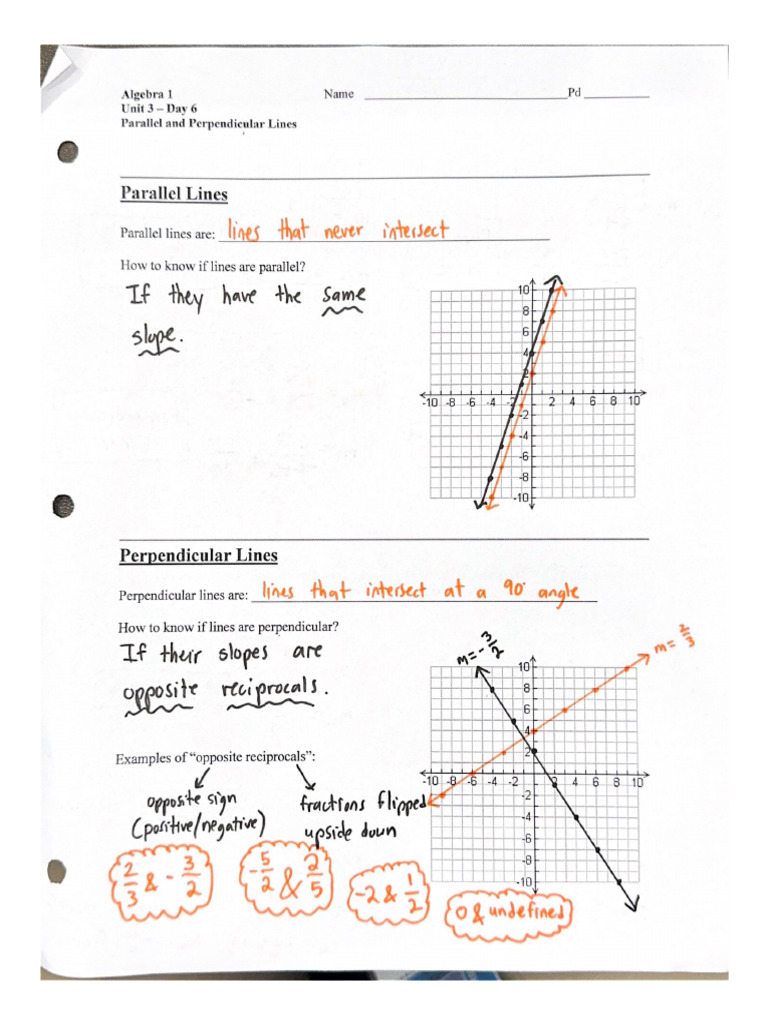 Algebra 1
Name ____ Pd ____
Unit 3 – Day 6
Parallel and Perpendicular Lines
Parallel Lines
Parallel lines are: lines that never intersect
How to know if lines are parallel?
If they have the same
slope.
10
8
6
4
2
-10 -8 -6 -4 -2 2 4 6 8 10
-2
-4
-6
-8
-10
Perpendicular Lines
Perpendicular lines are: lines that intersect at a 90° angle
How to know if lines are perpendicular?
If their slopes are
opposite reciprocals.
m = -3/2
m = 2/3
10
8
6
4
2
-10 -8 -6 -4 -2 2 4 6 8 10
-2
-4
-6
-8
-10
Examples of “opposite reciprocals”:
opposite sign
(positive/negative)
fractions flipped
upside down
2/3 & -3/2
-5/2 & 2/5
-2 & 1/2
0 & undefined